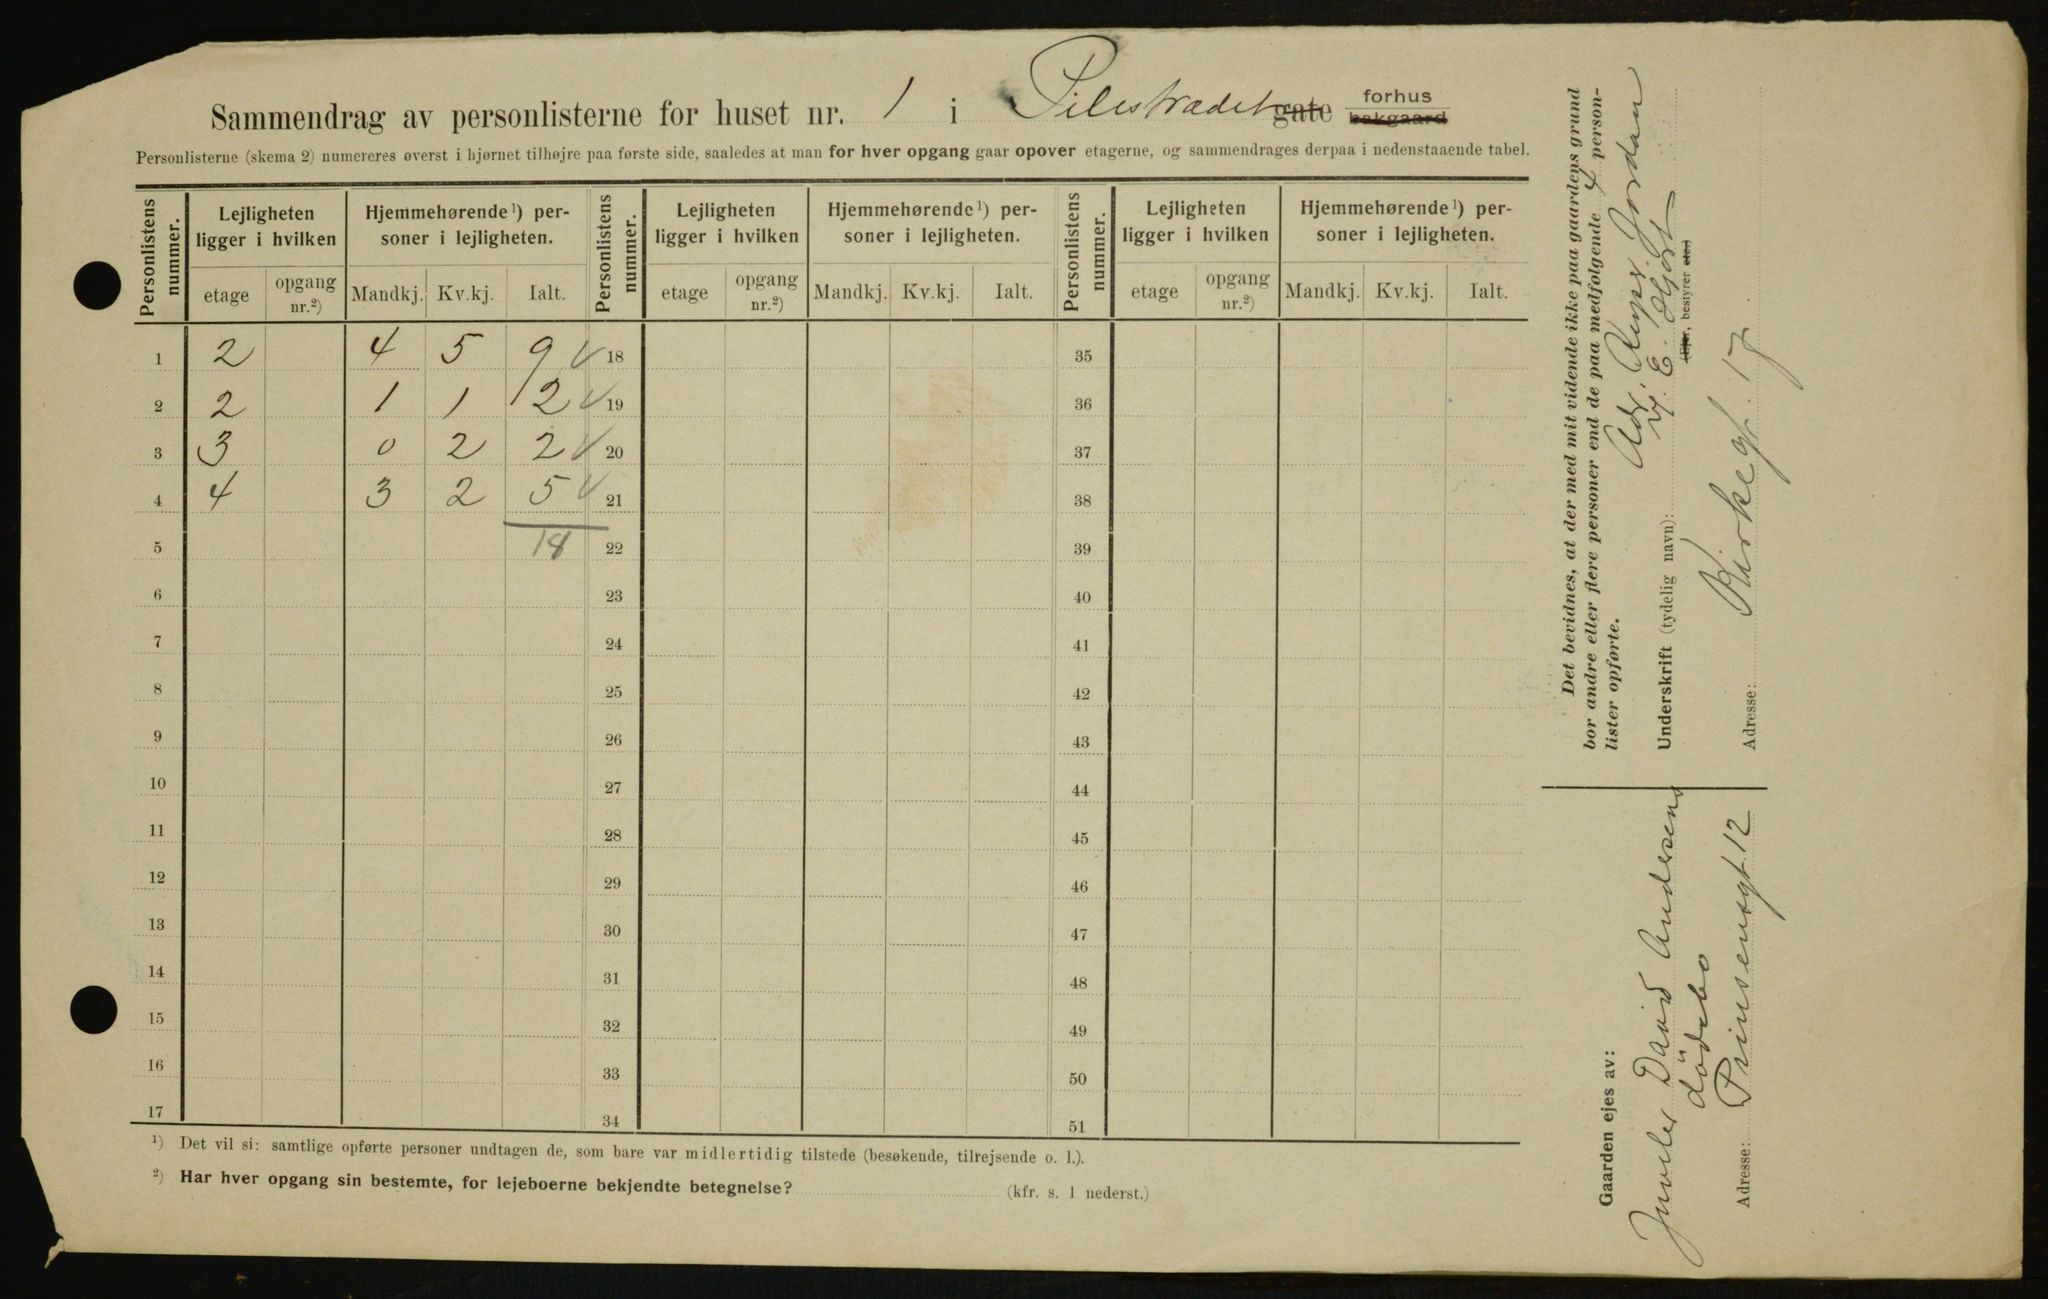 Sammendrag av personlisterne for huset nr. 1 i Pilestrædet gate forhus bakgaard
Personlisterne (skema 2) numereres øverst i hjørnet tilhøjre paa første side, saaledes at man for hver opgang gaar opover etagerne, og sammendrages derpaa i nedenstaaende tabel.
Personlistens nummer. Lejligheten ligger i hvilken Hjemmehørende¹) personer i lejligheten. Personlistens nummer. Lejligheten ligger i hvilken Hjemmehørende¹) personer i lejligheten. Personlistens nummer. Lejligheten ligger i hvilken Hjemmehørende¹) personer i lejligheten.
etage opgang nr.²) Mandkj. Kv.kj. Ialt. etage opgang nr.²) Mandkj. Kv.kj. Ialt. etage opgang nr.²) Mandkj. Kv.kj. Ialt.
1 2 4 5 9 18 35
2 2 1 1 2 19 36
3 3 0 2 2 20 37
4 4 3 2 5 21 38
5 18 22 39
6 23 40
7 24 41
8 25 42
9 26 43
10 27 44
11 28 45
12 29 46
13 30 47
14 31 48
15 32 49
16 33 50
17 34 51
¹) Det vil si: samtlige opførte personer undtagen de, som bare var midlertidig tilstede (besøkende, tilrejsende o. l.).
²) Har hver opgang sin bestemte, for lejeboerne bekjendte betegnelse? (kfr. s. 1 nederst.)
Det bevidnes, at der med mit vidende ikke paa gaardens grund
bor andre eller flere personer end de paa medfølgende 4 person-
lister opførte.
Jordan
Underskrift (tydelig navn): E. Hjort
(Ejer, bestyrer etc.)
Adresse: Kirkegt. 17.
Gaarden ejes av:
Juveler David Andersens
dödsbo
Adresse: Prinsensgt 12